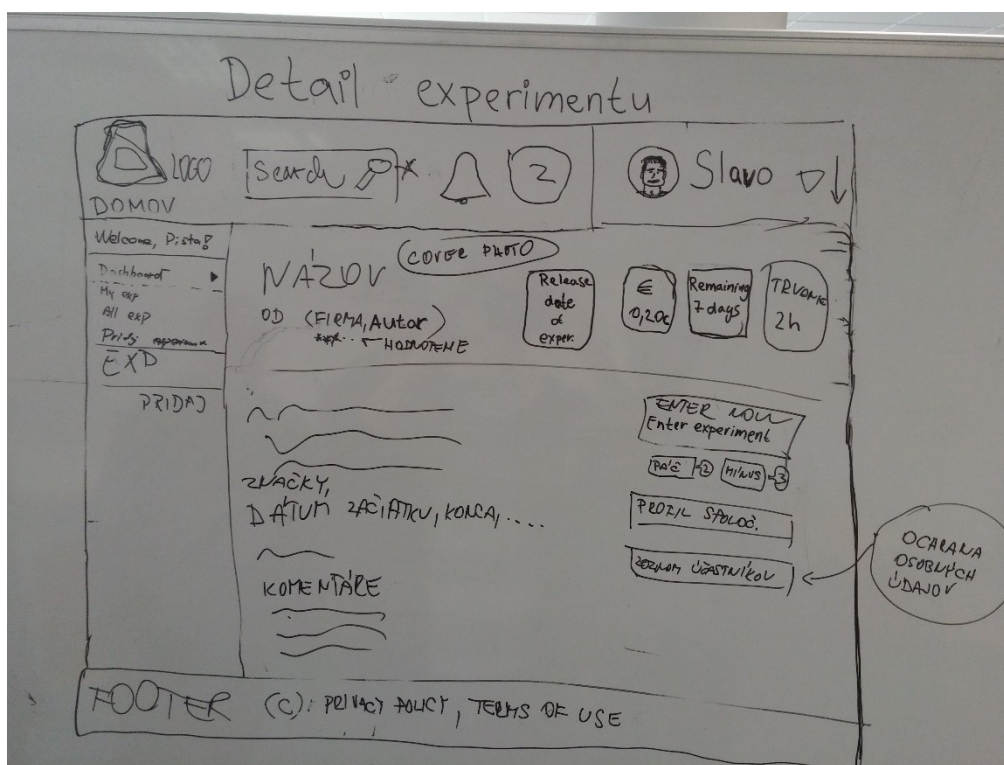 Detail experimentu
LOGO
Search
2
Slavo
DOMOV
Welcome, Pista!
Dashboard
My exp
All exp
Pridaj
EXP
PRIDAJ
NÁZOV
COVER PHOTO
OD (FIRMA, Autor)
HODNOTENIE
Release
date
of
exper.
€
0,20c
Remaining
7 days
TRVANIE
2h
ENTER NOW
Enter experiment
PÁČ 2 MÍNUS 3
PROFIL SPOLOČ.
ZOZNAM ÚČASTNÍKOV
OCHRANA
OSOBNÝCH
ÚDAJOV
ZNAČKY,
DÁTUM ZAČIATKU, KONCA, ....
KOMENTÁRE
FOOTER (C): PRIVACY POLICY, TERMS OF USE